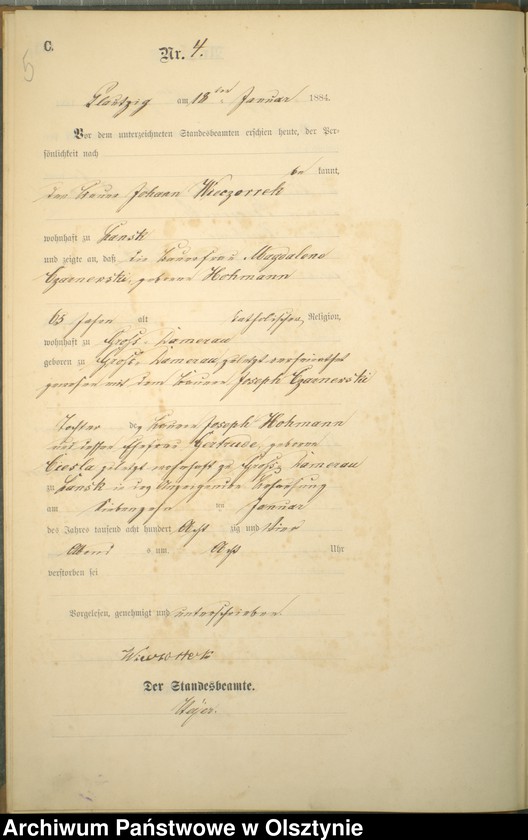 C.
5
Nr. 4.
am 18ten Januar 1884.
Vor dem unterzeichneten Standesbeamten erschien heute, der Per-
sönlichkeit nach
be kannt,
Johann Wieczorrek
wohnhaft zu Lansk
und zeigte an, daß die Bauerfrau Magdalena
geborene Hohmann
65 Jahre alt katholischer Religion,
wohnhaft zu Groß-Kamerau
geboren zu Groß-Kamerau, zuletzt verheirathet
gewesen mit dem Bauer Joseph
Tochter des Bauer Joseph Hohmann
und dessen Ehefrau Gertrude, geborene
Ciesla zuletzt wohnhaft zu Groß Kamerau
zu Lansk in des Anzeigenden Behausung
am siebenzehn ten Januar
des Jahres tausend acht hundert Acht zig und Vier
Abend s um Acht Uhr
verstorben sei
Vorgelesen, genehmigt und unterschrieben
Der Standesbeamte.
Archiwum Państwowe w Olsztynie